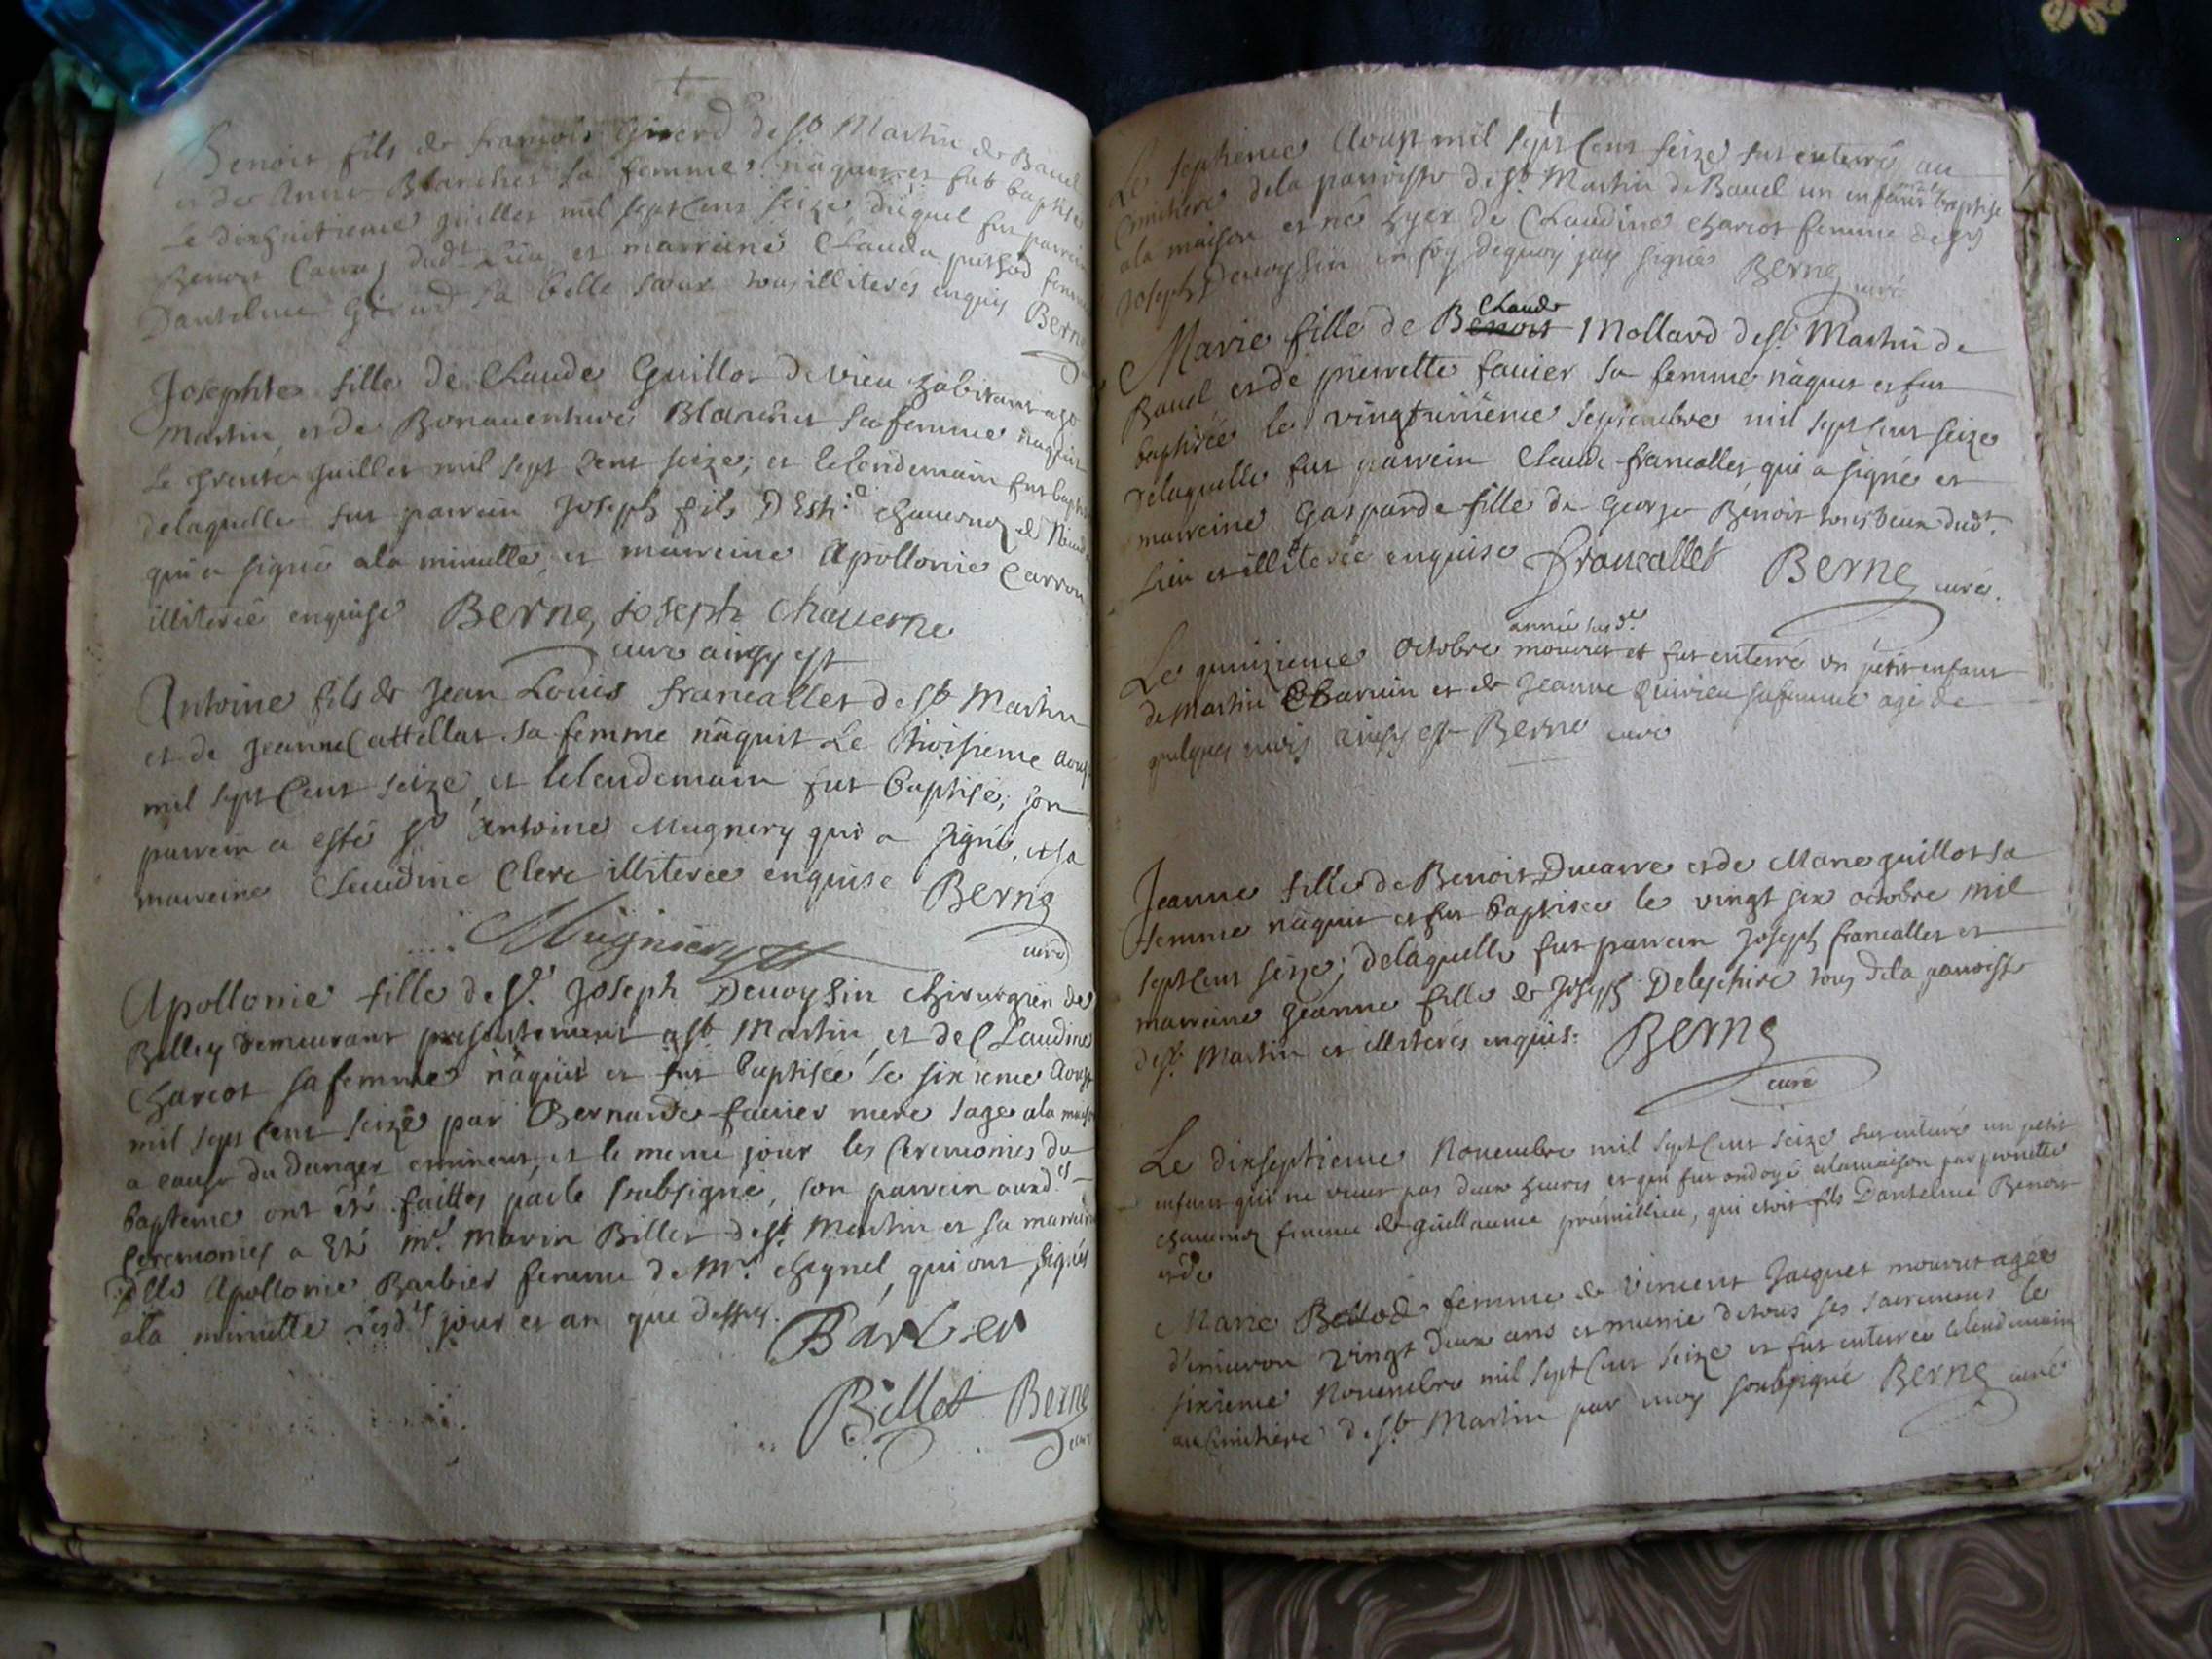 Benoit fils de francois Girerd de St Martin de Bauel
et de Anne Blanchet sa femme naquit et fut baptisé
Le dixhuitieme juillet mil sept Cens seize, duquel fut parrein
Benoit Carray dudt Lieu et marreine Clauda femme
Dantelme Girerd sa belle soeur tous illiterés enquis Berne
Josephte fille de Claude Guillot de vieu habitant a St
Martin et de Bonauenture Blanchet sa femme naquit
Le trente juillet mil sept Cent seize; et lelendemain fut baptisée
delaquelle fut parrein Joseph fils D'Esti.e chauernoz de
qui a signé ala minutte, et marreine Apollonie Carron
illiterée enquise Berne, Joseph Chauerne
curé ainsy est
Antoine fils de Jean Louis francallet de St Martin
et de Jeanne Cattellat sa femme naquit Le troisieme Aoust
mil sept Cent seize, et lelendemain fut baptisé; son
parrein a esté Sr Antoine Mugnery qui a signé, et sa
marreine Claudine Clerc illiterée enquise Berne
Mugniery curé
Apollonie fille de Sr. Joseph Deuoysin chirurgien de
Belley demeurant presentement a St Martin, et de Claudine
Charcot sa femme naquit et fut baptisée le sixieme Aoust
mil sept Cent seize par Bernarde fauier mere sage ala maison
a cause du danger eminent, et le meme jour les Ceremonies du
bapteme ont été faittes par le soubsigné, son parrein auxd.es
Ceremonies a été Mr. Marin Billet de St. Martin et sa marreine
dlle Apollonie Barbier femme de Mr. cheynel, qui ont signés
ala minutte lesd.ts jour et an que dessus.
Barbier
Billet Berne
curé
Le septieme Aoust mil sept Cent seize fut enterré au
Cimitiere dela parroisse de St Martin de Bauel un enfant baptisé
ala maison et né hyer de Claudine charcot femme de Sr
Joseph Deuoysin en foy dequoy jay signé Berne curé
Claude
Marie fille de Benoit Mollard de St. Martin de
Bauel et de pierrette fauier sa femme naquit et fut
baptisée le septembre mil sept Cent seize
delaquelle fut parrein Claude francallet, qui a signé et
marreine Gasparde fille de George Benoit tous deux dudt.
Lieu et illiterée enquise Francallet Berne curé.
année susd.e
Le quinzieme Octobre mourut et fut enterré un petit enfant
de Martin et de Jeanne sa femme agé de
quelques mois ainsy est Berne curé
Jeanne fille de Benoit Ducarre et de Marie guillot sa
femme naquit et fut baptisée le vingt six octobre mil
sept Cent seize; delaquelle fut parrein Joseph francallet et
marreine Jeanne fille de Joseph tous dela parroisse
de St. Martin et illiterés enquis. Berne
curé
Le dixseptieme Nouembre mil sept Cent seize fut enterré un petit
enfant qui ne vécut pas deux heures et qui fut ondoyé alamaison par pernette
chauernoz femme de guillaume prémillieu, qui etoit fils Dantelme Benoit
et de
Marie femme de Vincent Jacquet mourut agée
d'enuiron vingt deux ans et munie detous ses sacremens le
sixieme Nouembre mil sept Cent seize et fut enterrée lelendemain
au Cimitiere de St. Martin par moy soubsigné Berne curé